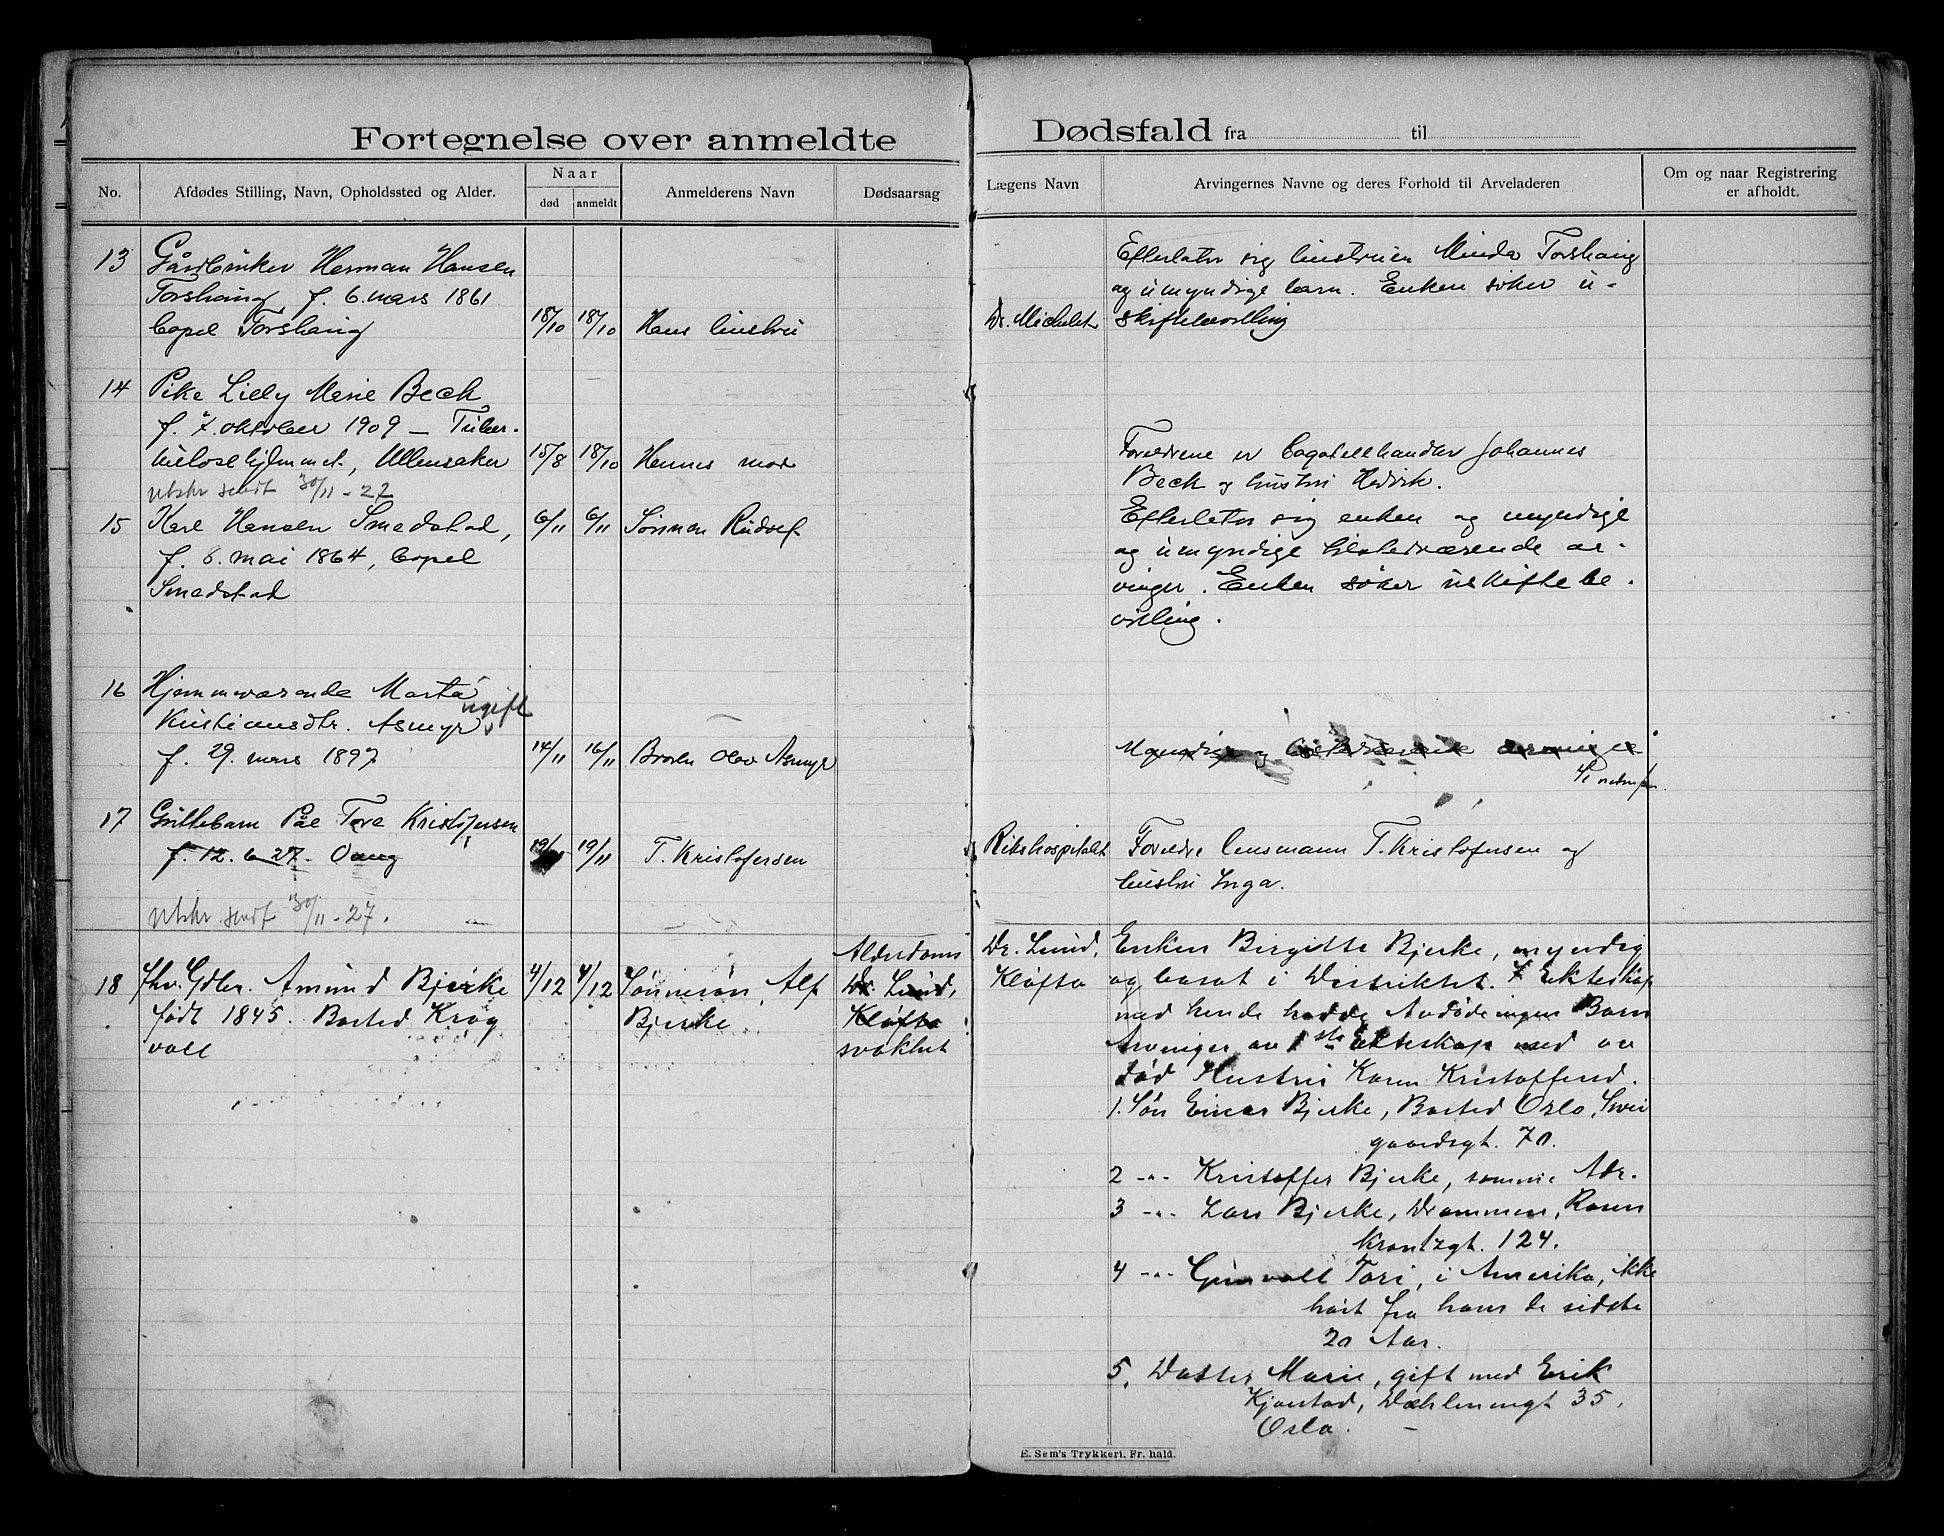 Fortegnelse over anmeldte Dødsfald fra til
No.
Afdødes Stilling, Navn, Opholdssted og Alder.
Naar
død
anmeldt
Anmelderens Navn
Dødsaarsag
Lægens Navn
Arvingernes Navne og deres Forhold til Arveladeren
Om og naar Registrering
er afholdt.
13
Gårdbruker Herman Hansen
Torshaug, f. 6. mars 1861
Torshaug
18/10
18/10
Hans hustru
Dr. Michelet
Efterlater sig hustruen Minda Torshaug
og umyndige barn. Enken søker u-
skiftebevilling
14
Pike Lilly Marie Beck
f. 7. oktober 1909 – Tuber-
kulosehjemmet, Ullensaker
utskr sendt 30/11-27
15/8
18/10
Hennes mor
Foreldrene er Johannes
Beck og hustru
15
Karl Hansen Smedstad,
f. 6. mai 1864,
Smedstad
6/11
6/11
Rudolf
Efterlater sig enken og myndige
og umyndige tilstedeværende ar-
vinger. Enken søker uskiftebe-
villing.
16
Hjemmeværende Marta
ugift
Kristiansdtr. Asmyr
f. 29. mars 1897
14/11
16/11
Broren Olav Asmyr
Myndige og tilstedeværende arvinger
17
Guttebarn Pål Tore Kristofersen
f. 12. 6 27.
utskr sendt 30/11-27.
19/11
19/11
T. Kristofersen
Rikshospitalet
Foreldre lensmann T. Kristofersen og
hustru Inga.
18
fhv. Gdbr. Amund Bjerke
født 1845. Bosted Krog
voll
4/12
4/12
Sønnesøn, Alf
Bjerke
Alderdoms
Dr. Lund,
Kløfta
svakhet
Dr. Lund,
Kløfta
Enken Birgitte Bjerke, myndig
og bosat i Distriktet. I Ekteskap
med hende hadde Avdøde ingen Barn
Arvinger av 1ste Ekteskap med av
død Hustru Karen Kristoffersd.
1. Søn Einar Bjerke, Bosted Oslo, Svei
gaardsgt. 70.
2 -"- Kristoffer Bjerke, samme Adr.
3 -"- Lars Bjerke, Drammen, Rosen
krantzgt. 124.
4 -"- Gunvall Tori, i Amerika, ikke
hørt fra ham de sidste
20 Aar.
5. Datter Marie, gift med Erik
Kjonstad, Dæhlenengt 35,
Oslo. –
E. Sem's Trykkeri, Fr.hald.